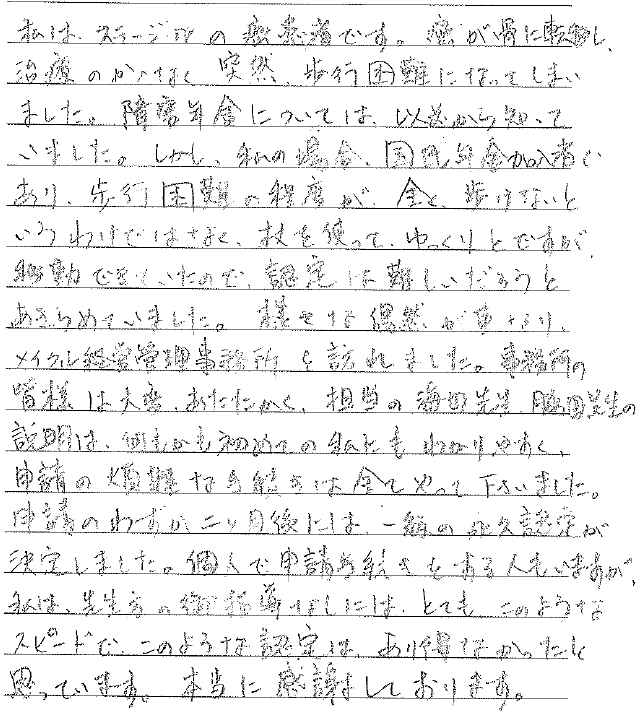 私は、ステージⅣの癌患者です。癌が骨に転移し、
治療のかいなく突然、歩行困難になってしまい
ました。障害年金については、以前から知って
いました。しかし、私の場合、国民年金加入者で
あり、歩行困難の程度が、全く、歩けないと
いうわけではなく、杖を使って、ゆっくりとですが、
移動できていたので、認定は難しいだろうと
あきらめていました。様々な偶然が重なり、
メイクル経営管理事務所を訪れました。事務所の
皆様は大変、あたたかく、担当の海田先生、脇田先生の
説明は、何もかも初めての私にもわかりやすく、
申請の煩雑な手続きは全てやって下さいました。
申請のわずか二ヶ月後には、一級の永久認定が
決定しました。個人で申請手続きをする人もいますが、
私は、先生方の御指導なしには、とてもこのような
スピードで、このような認定は、あり得なかったと
思っています。本当に感謝しております。